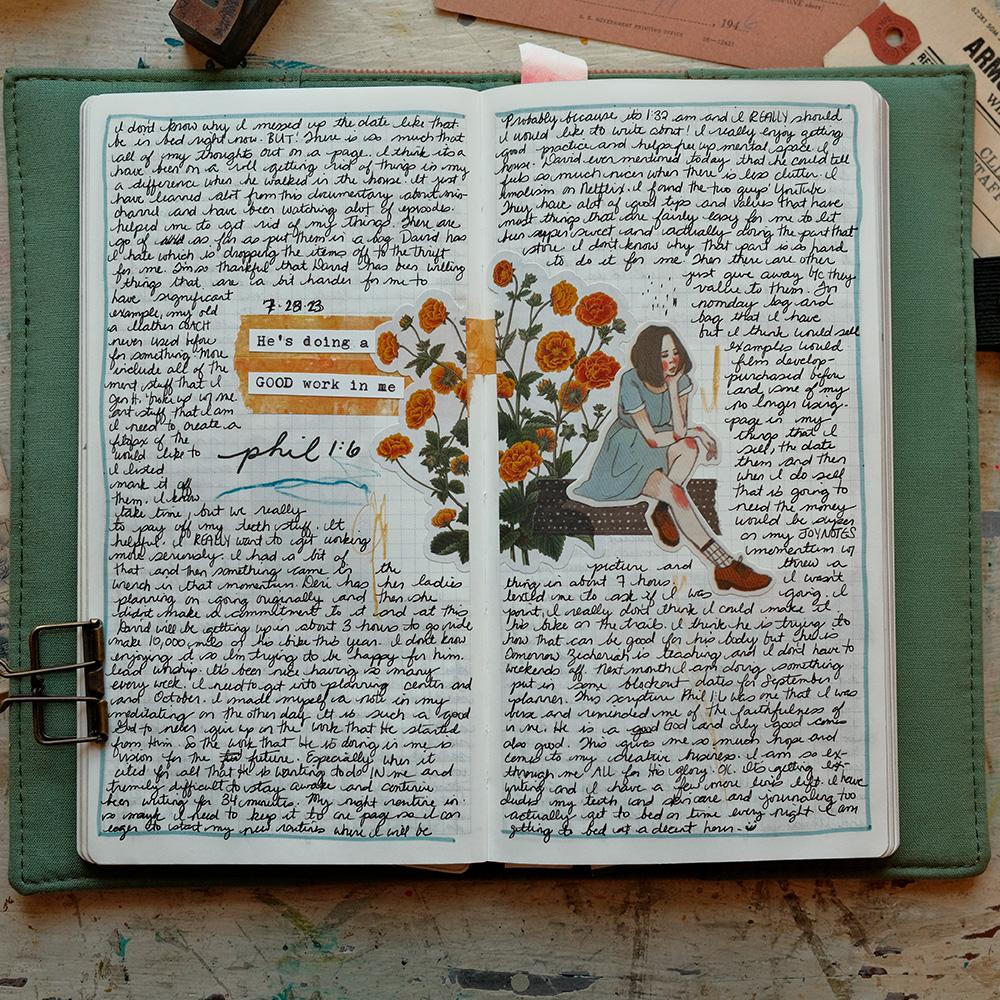 U. S. GOVERNMENT PRINTING OFFICE
, 194
ARM
I don't know why I messed up the date like that. Probably because its 1:32 am and I REALLY should
be in bed right now. BUT! There is so much that I would like to write about! I really enjoy getting
all of my thoughts out on a page. I think its a good practice and helps free up mental space. I
have been on a roll getting rid of things in my house. David even mentioned today that he could tell
a difference when he walked in the house. It just feels so much nicer when there is less clutter. I
have learned alot from this documentary about minimalism on Netflix. I found the two guys' YouTube
channel and have been watching alot of episodes. They have alot of good tips and values that have
helped me to get rid of my things. There are most things that are fairly easy for me to let
go of as far as put them in a bag. David has been super sweet and actually doing the part that
I hate which is dropping the items off to the thrift store. I don't know why that part is so hard
for me. I'm so thankful that David has been willing to do it for me. Then there are other
things that are a bit harder for me to just give away b/c they
have significant value to them. For
7-28-23
example, my old bag and
a leather COACH bag that I have
never used before but I think would sell
He's doing a
for something. More examples would
include all of the film develop-
GOOD work in me
ment stuff that I purchased before
and some of my
art stuff that I am no longer using.
I need to create a page in my
of the things that I
phil 1:6
would like to sell, the date
I listed them and then
mark it off when I do sell
them. I know that is going to
take time, but we really need the money
to pay off my teeth stuff. It would be super
helpful. I REALLY want to get working on my JOYNOTES
more seriously. I had a bit of momentum w/
that and then something came in the picture and threw a
wrench in that momentum. Deri has her ladies thing in about 7 hours. I wasn't
planning on going originally and then she texted me to ask if I was going. I
didn't make a commitment to it and at this point, I really don't think I could make it.
David will be getting up in about 3 hours to go ride his bike on the trail. I think he is trying to
make 10,000 miles on his bike this year. I don't know how that can be good for his body but he is
enjoying it so I'm trying to be happy for him. Tomorrow is teaching and I don't have to
lead worship. Its been nice having so many weekends off. Next month I am doing something
every week. I need to get into planning center and put in some blockout dates for September
and October. I made myself a note in my planner. This scripture Phil 1:6 was one that I was
meditating on the other day. It is such a good verse and reminded me of the faithfulness of
God to never give up on the work that He started in me. He is a good God and only good comes
from Him. So the work that He is doing in me is also good. This gives me so much hope and
vision for the future. Especially when it comes to my creative business. I am so ex-
cited for all that He is wanting to do IN me and through me ALL for His glory. OK. Its getting ex-
tremely difficult to stay awake and continue writing and I have a few more lines left. I have
been writing for 34 minutes. My night routine in-cludes my teeth and skincare and journaling too
so maybe I need to keep it to one page so I can actually get to bed on time every night. I am
eager to start my new routines where I will be getting to bed at a decent hour.